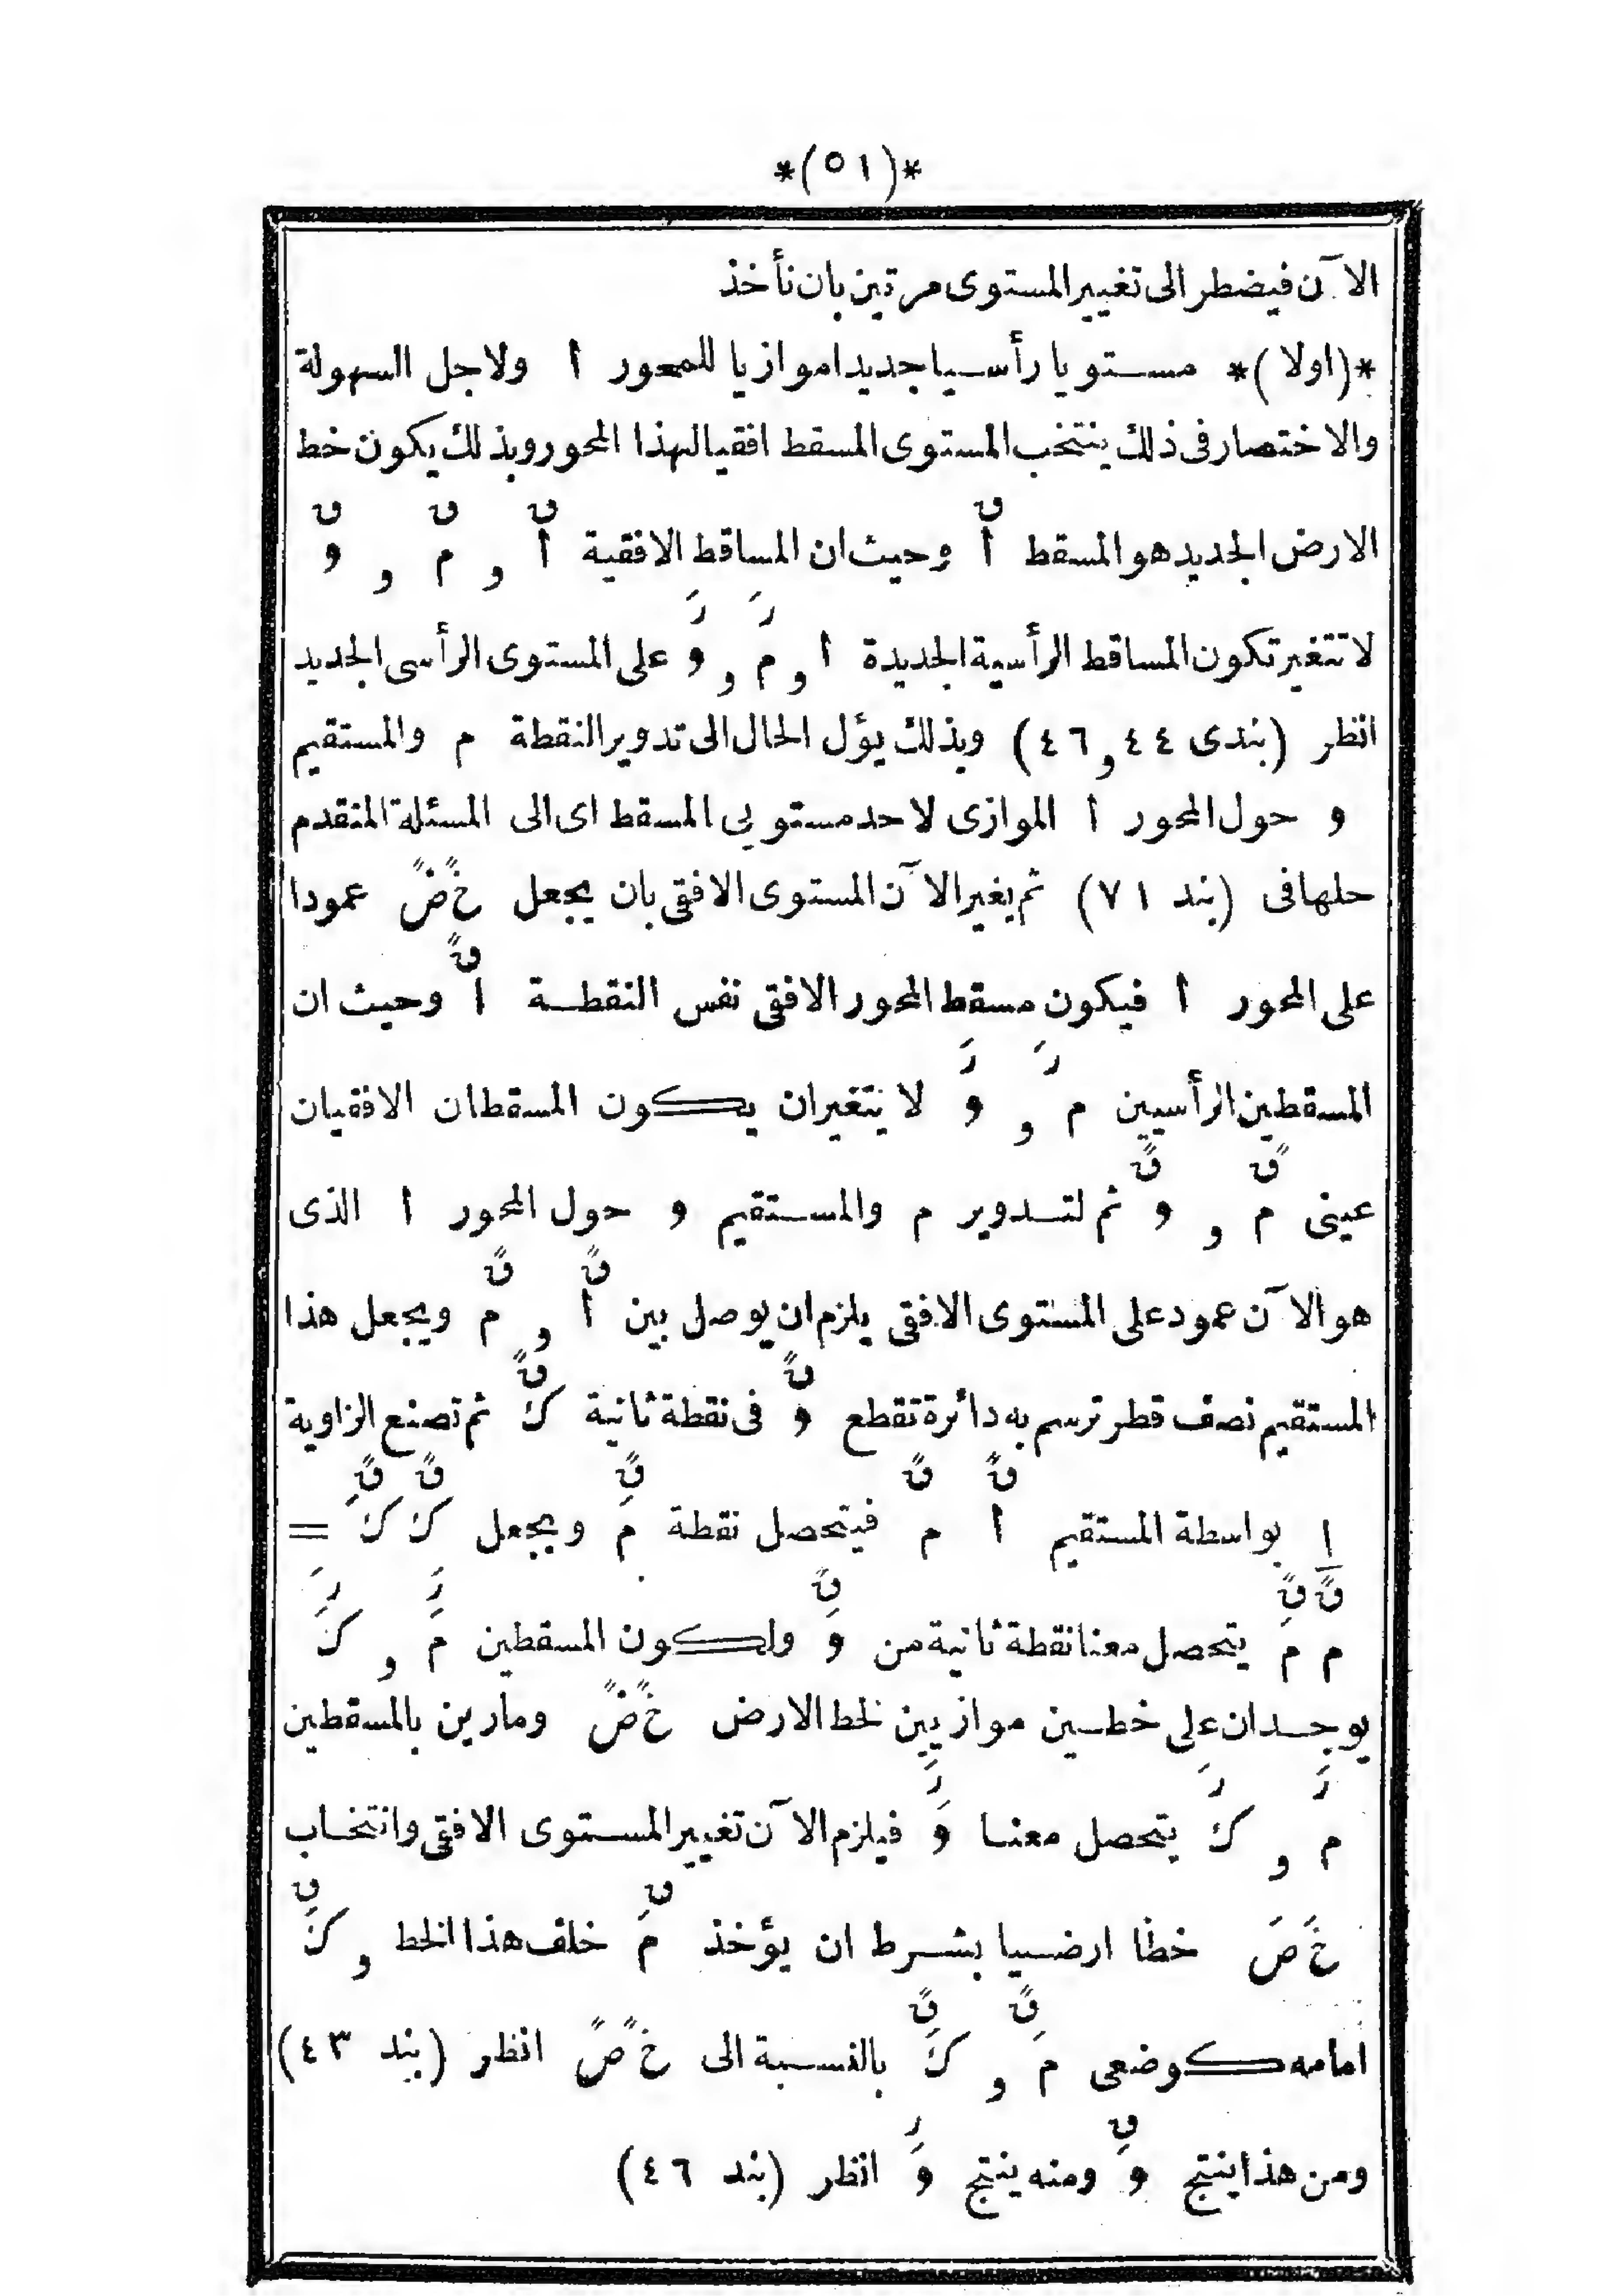 *(٥١)*
الآن فيضطر الى تغيير المستوى مرتين بان نأخذ
*(اولا)* مستويا رأسيا جديدا موازيا للمحور ا ولاجل السهولة
والاختصار فى ذلك ينتخب المستوى المسقط افقيا لهذا المحور وبذلك يكون خط
ٯ ٯ ٯ ٯ
الارض الجديد هو المسقط ا وحيث ان المساقط الافقية ا و م و و
رَ رَ
لا تتغير تكون المساقط الرأسية الجديدة ا و م و و على المستوى الرأسى الجديد
انظر (بندى ٤٤ و ٤٦) وبذلك يؤل الحال الى تدوير النقطة م والمستقيم
و حول المحور ا الموازى لاحد مستويى المسقط اى الى المسئلة المتقدم
حلها فى (بند ٧١) ثم يغير الآن المستوى الافقى بان يجعل خً ضً عمودا
ٯً
على المحور ا فيكون مسقط المحور الافقى نفس النقطة ا وحيث ان
رَ رَ
المسقطين الرأسيين م و و لا يتغيران يكون المسقطان الافقيان
ٯً ٯً
عينى م و و ثم لتدوير م والمستقيم و حول المحور ا الذى
ٯً ٯً
هو الآن عمود على المستوى الافقى يلزم ان يوصل بين ا و م ويجعل هذا
ٯً ٯً
المستقيم نصف قطر ترسم به دائرة تقطع و فى نقطة ثانية ك ثم تصنع الزاوية
ٯً ٯً ٯً ٯً ٯً
ا بواسطة المستقيم ا م فيتحصل نقطة مَ ويجعل ك كَ =
ٯً ٯً ٯً رَ رَ
م مَ يتحصل معنا نقطة ثانية من وَ ولكون المسقطين مَ و كَ
يوجدان على خطين موازيين لخط الارض خً ضً ومارين بالمسقطين
رَ رَ رَ
م و ك يتحصل معنا وَ فيلزم الآن تغيير المستوى الافقى وانتخاب
ٯ ٯ
خَ ضَ خطا ارضيا بشرط ان يؤخذ مَ خلف هذا الخط و كَ
ٯً ٯً
امامه كوضعى مَ و كَ بالنسبة الى خً ضً انظر (بند ٤٣)
ٯ ر
ومن هذا ينتج وَ ومنه ينتج وَ انظر (بند ٤٦)